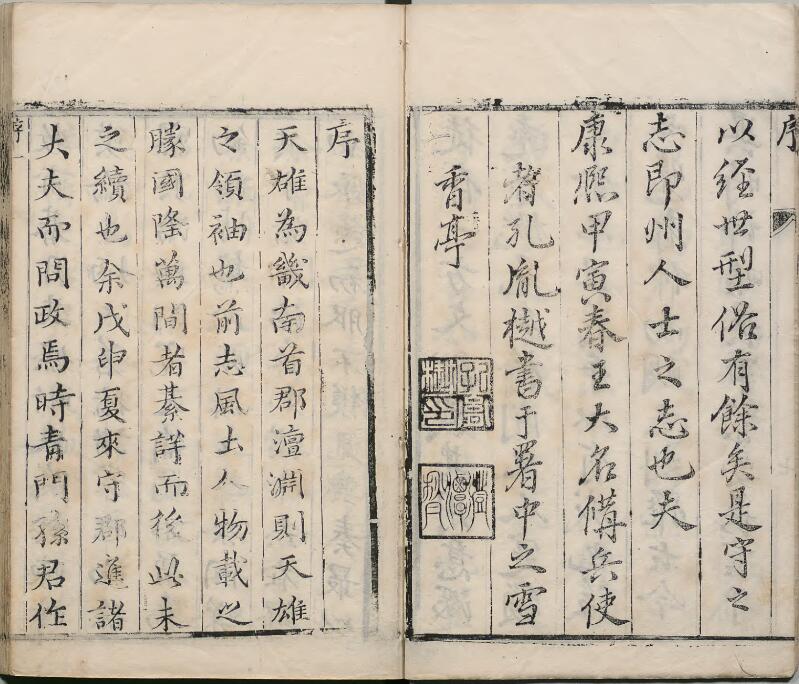 序
以經世型俗有餘矣是守之
志即州人士之志也夫
康熙甲寅春王大名備兵使
者孔胤樾書于署中之雪
香亭
序
天雄為畿南首郡澶淵則天雄
之領袖也前志風土人物載之
縢國隆萬間者綦詳而後此未
之續也余戊申夏來守郡進諸
大夫而問政焉時青門孫君作
序 一